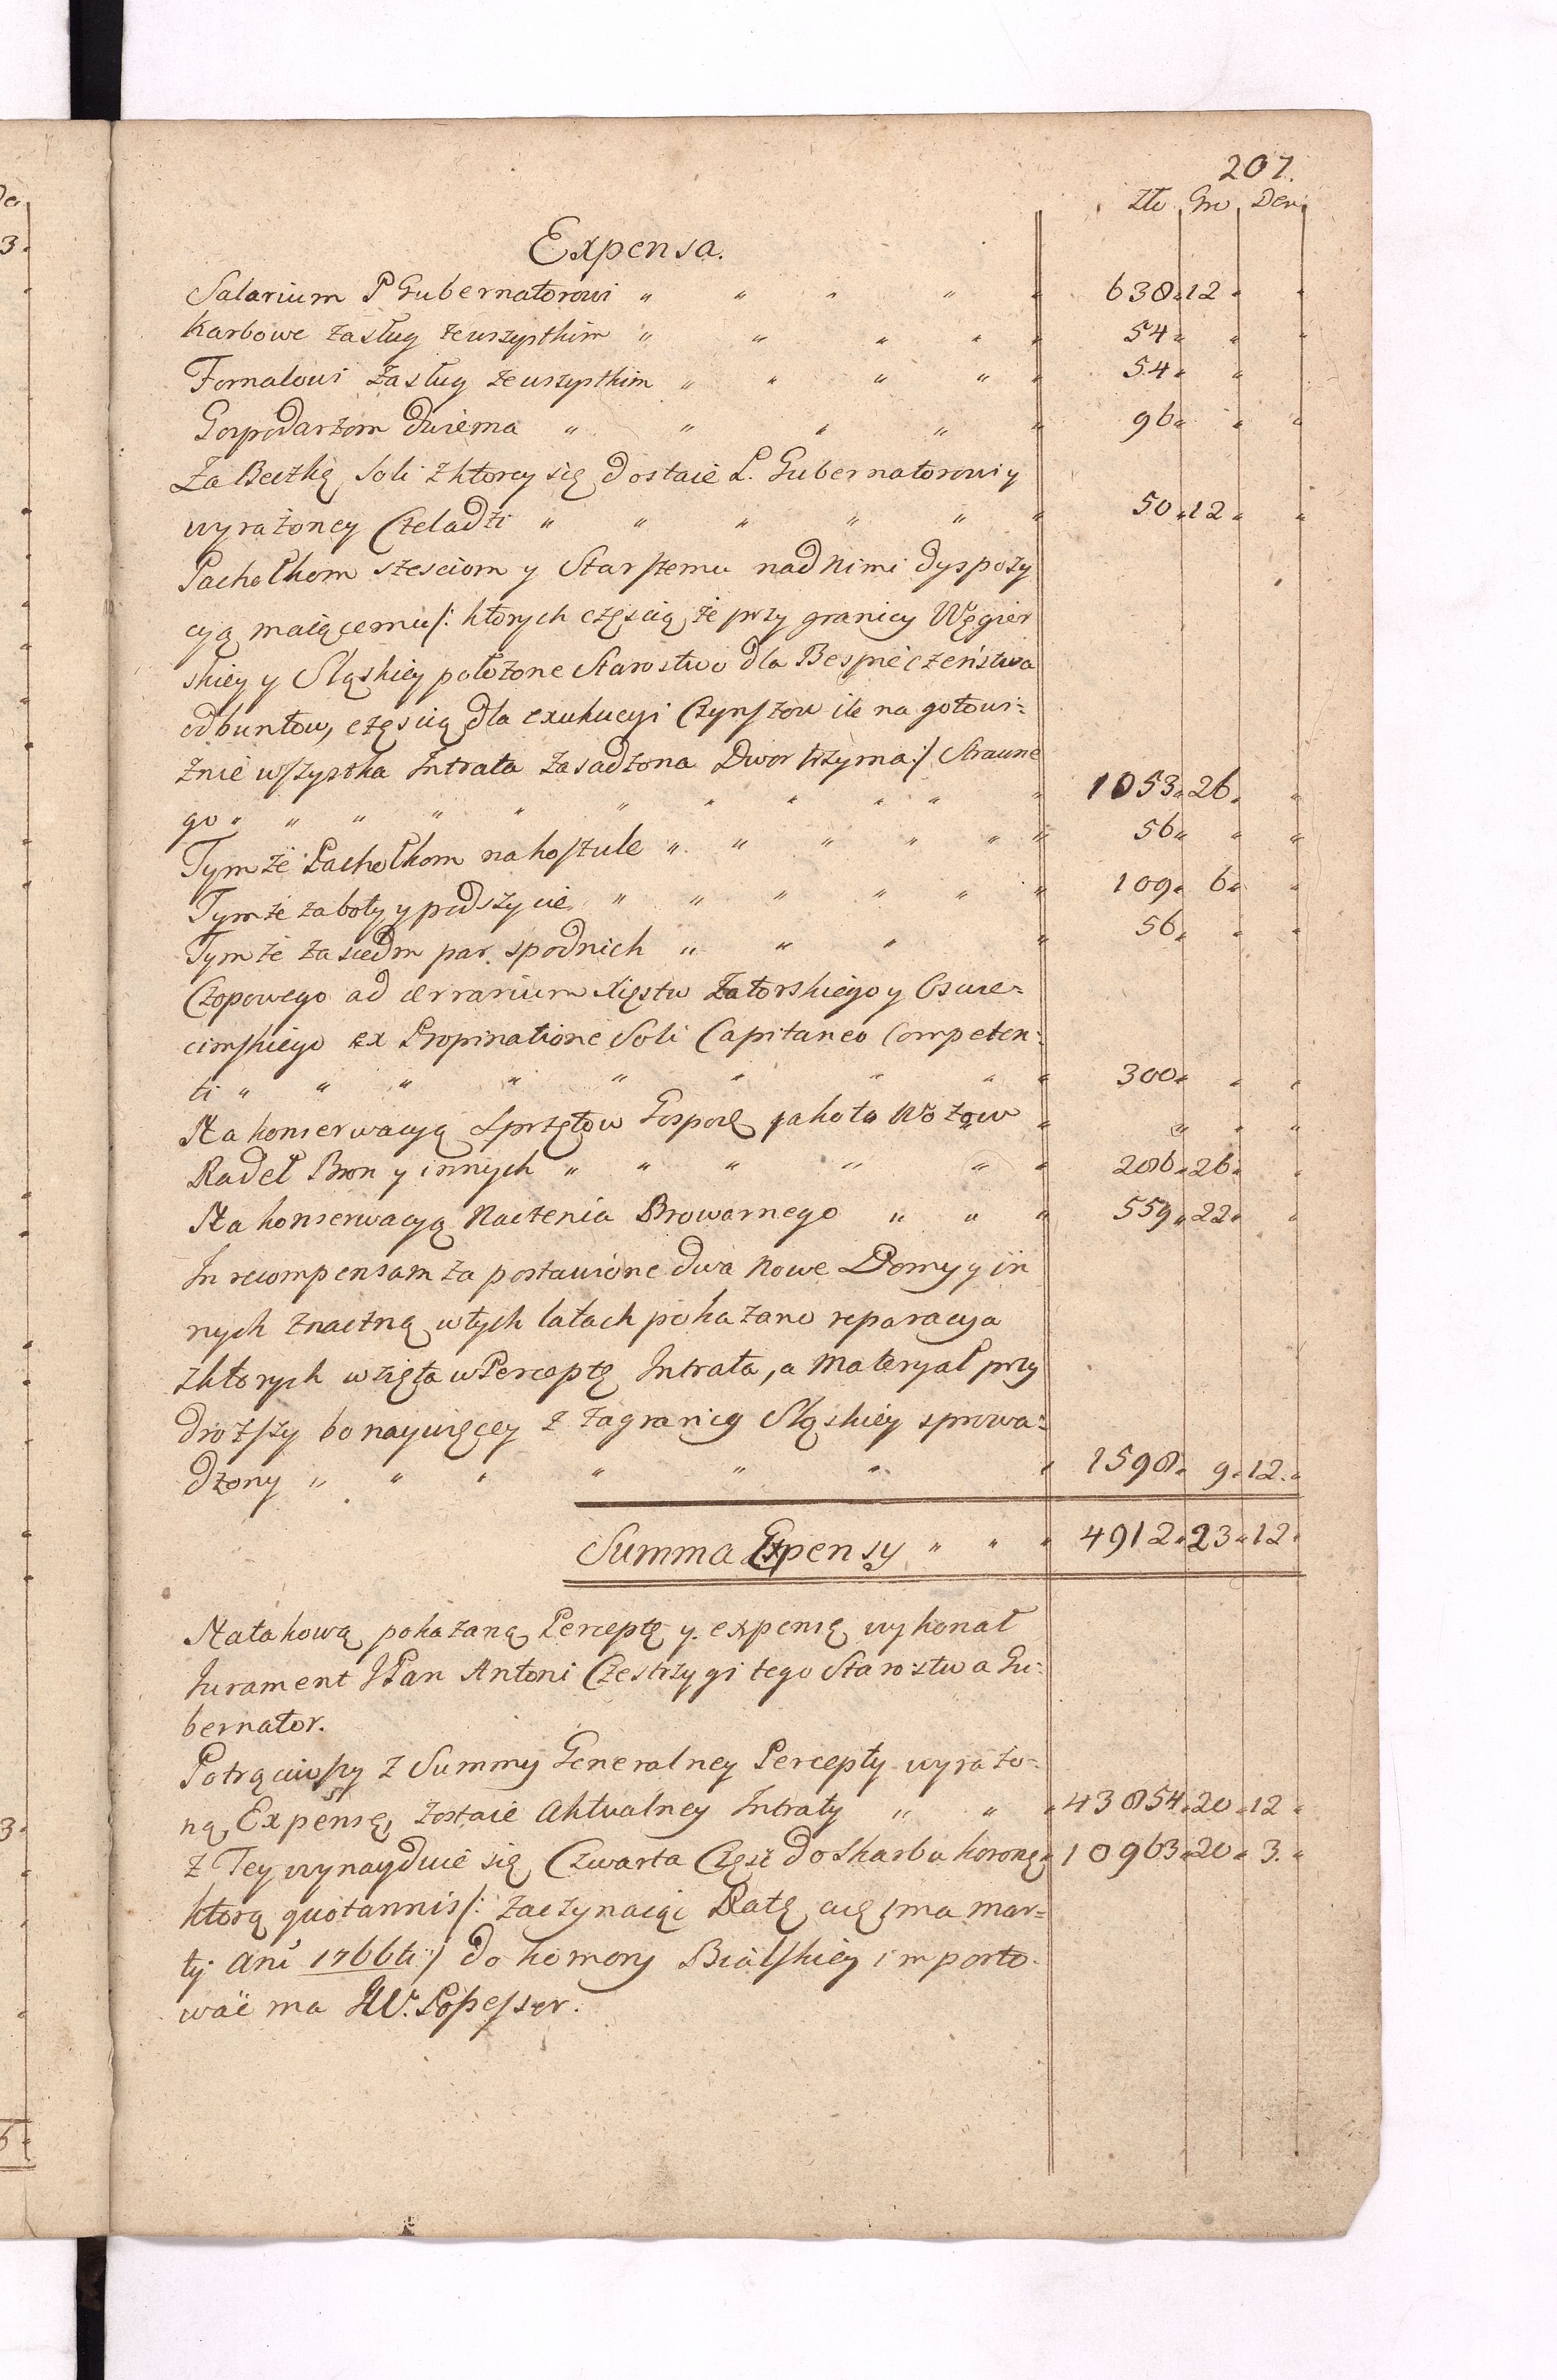 207.
Zło Gro Den
Expensa.
Salarium P Gubernatorowi " " " " " 638 " 12 " "
Karbowe zasług zewszystkim " " " " " 54 " " "
Fornalowi zasług zewszystkim " " " " " 54 " "
Gospodarzom dwiema " " " " " 96 " " "
Za Beczkę Soli z ktorey się dostaie P. Gubernatorowi y
wyrażoney Czeladzi " " " " " " 50 " 12 " "
Pachołkom szesciom y Starszemu nad Nimi dyspozy
cyą maiącemu /: ktorych częscią że przy granicy Węgier
skiey y Sląskiey położone Starostwo dla Bespieczeństwa
od buntow, częscią dla exukucyi Czynszow ile na gotowi=
znie wszystka Intrata zasadzona Dwor trzyma :/ Strawne
go " " " " " " " " " " " 1053 " 26 " "
Tymże Pachołkom na koszule " " " " " " 56 " " "
Tymże za boty y podszycie " " " " " " 109 " 6 " "
Tymże za siedm par spodnich " " " " 56 " " "
Czopowego ad aerrarium Xięstw Zatorskiego y Oswie=
cimskiego ex Propinatione Soli Capitaneo Competen=
ti " " " " " " " " " 300 " " "
Na konserwacyą Sprzętow Gospod jako to Wozow " " " "
Radeł Bron y innych " " " " " " 286 " 26 " "
Na konserwacyą Naczenia Browarnego " " " 559 " 22 " "
In recompensam za postawione dwa Nowe Domy y in
nych znaczną w tych latach pokazano reparacya
z ktorych wzięta w Perceptę Intrata, a Materyał przy
droższy bo naywięcey z zagranicy Sląskiey sprowa=
dzony " " " " " " " 1598 " 9 " 12 "
Summa Expensy " " " 4912 " 23 " 12 "
Na takową pokazaną Perceptę y expensę wykonał
Jurament JPan Antoni Czestrzygi tego Starostwa Gu=
bernator.
Potrąciwszy z Summy Generalney Percepty wyrażo=
ną Expensę, zostaie Aktualney Intraty " " " 43854 " 20 " 12 "
z Tey wynayduie się Czwarta Częsć do Skarbu koronę " 10963 " 20 " 3. "
ktorą quotannis /: zaczynaiąc Ratę a 1ma mar=
tij Ani 1766ti :/ do komory Bialskiey importo=
wać ma JW. Possessor.